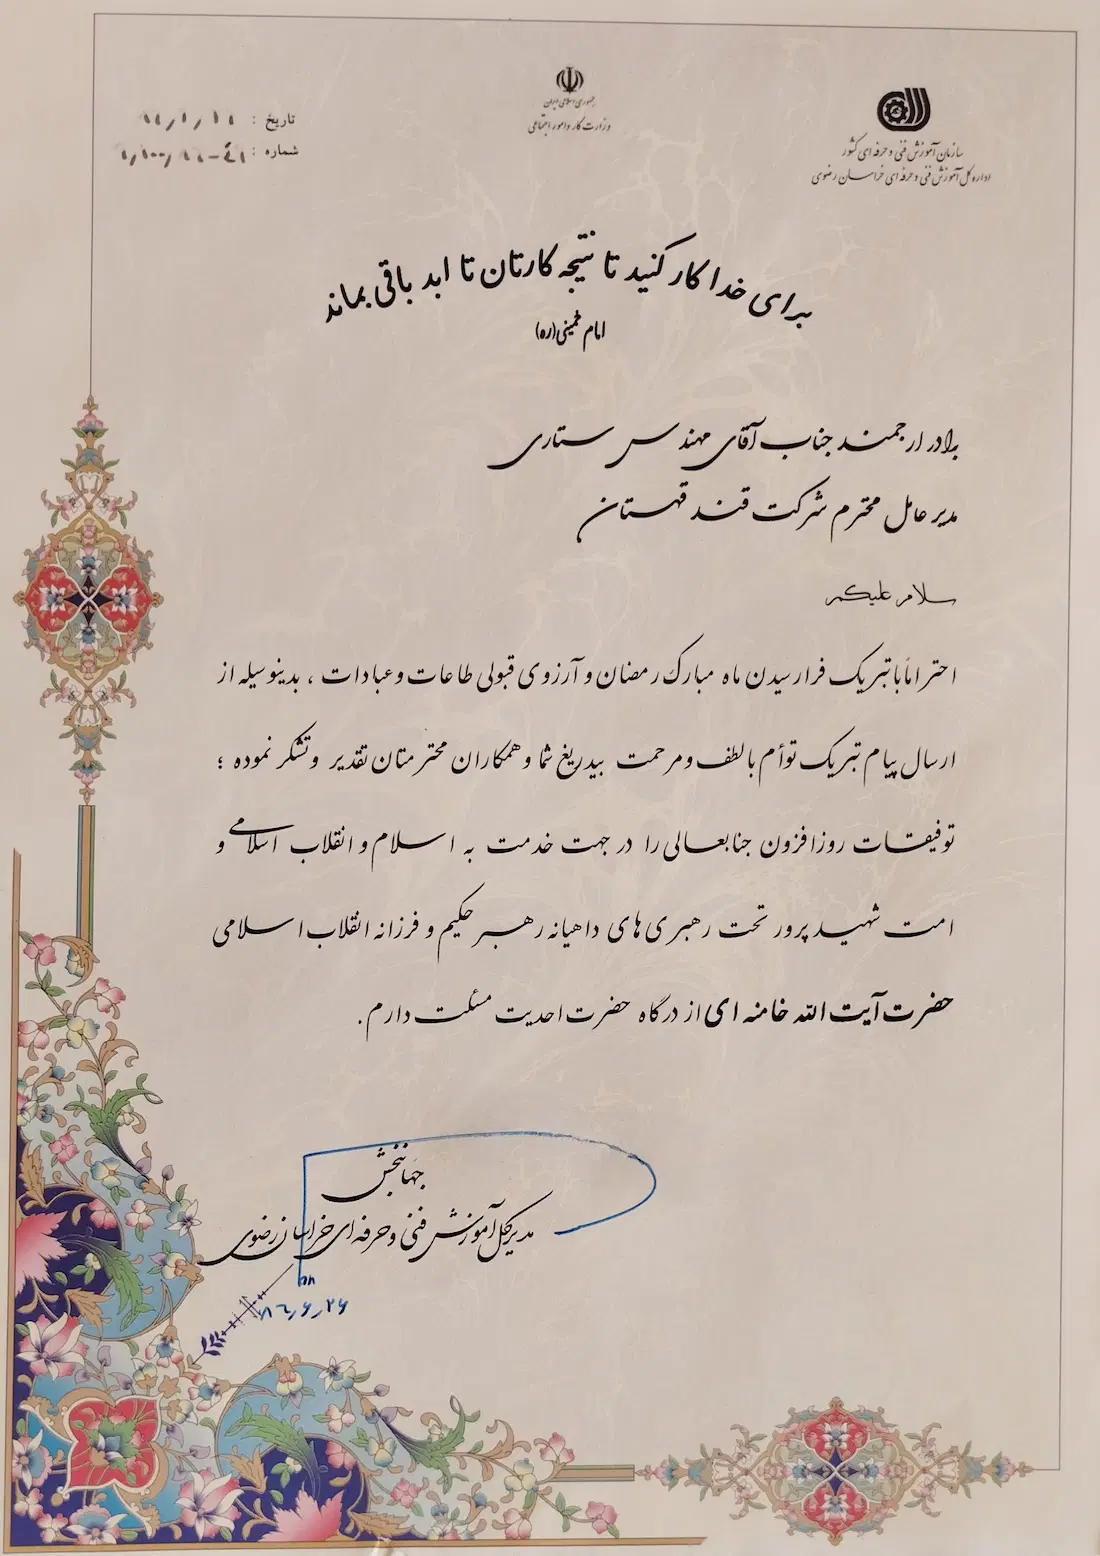 جمهوری اسلامی ایران
وزارت کار و امور اجتماعی
سازمان آموزش فنی و حرفه ای کشور
اداره کل آموزش فنی و حرفه ای خراسان رضوی
تاریخ :
شماره :
برای خدا کار کنید تا نتیجه کارتان تا ابد باقی بماند
امام خمینی (ره)
برادر ارجمند جناب آقای مهندس ستاری
مدیر عامل محترم شرکت قند قهستان
سلام علیکم
احتراماً با تبریک فرا رسیدن ماه مبارک رمضان و آرزوی قبولی طاعات و عبادات ، بدینوسیله از
ارسال پیام تبریک توأم با لطف و مرحمت بیدریغ شما و همکاران محترمتان تقدیر و تشکر نموده ؛
توفیقات روزافزون جنابعالی را در جهت خدمت به اسلام و انقلاب اسلامی و
امت شهید پرور تحت رهبری های داهیانه رهبر حکیم و فرزانه انقلاب اسلامی
حضرت آیت الله خامنه ای از درگاه حضرت احدیت مسئلت دارم.
جهانبخش
مدیرکل آموزش فنی و حرفه ای خراسان رضوی
۸۶/۶/۲۶